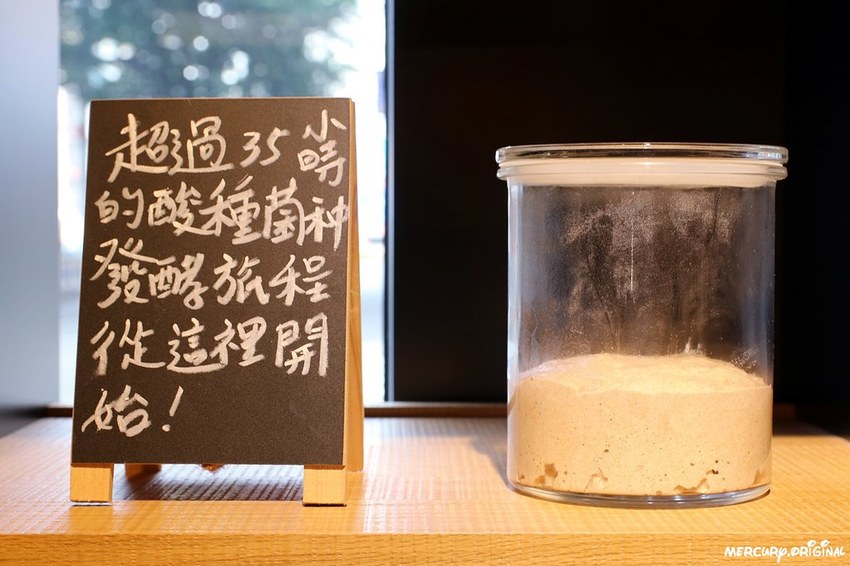 超過35小時
的酸種菌种
發酵旅程
從這裡開
始!
MERCURY.ORIGINAL